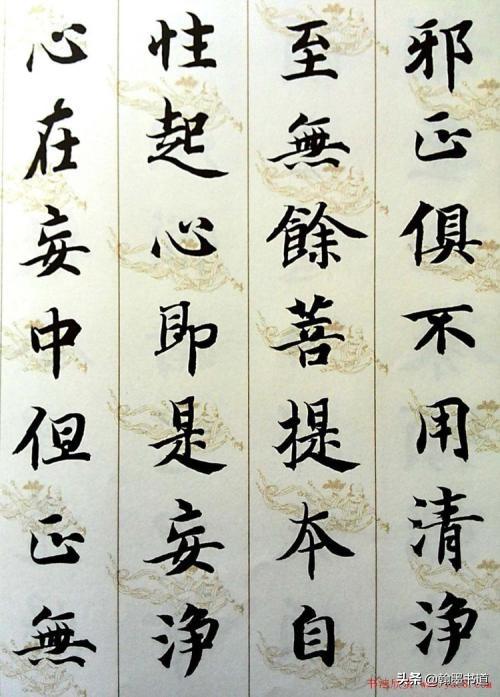 邪正俱不用清浄
至無餘菩提本自
性起心即是妄浄
心在妄中但正無
头条 @翰墨书道